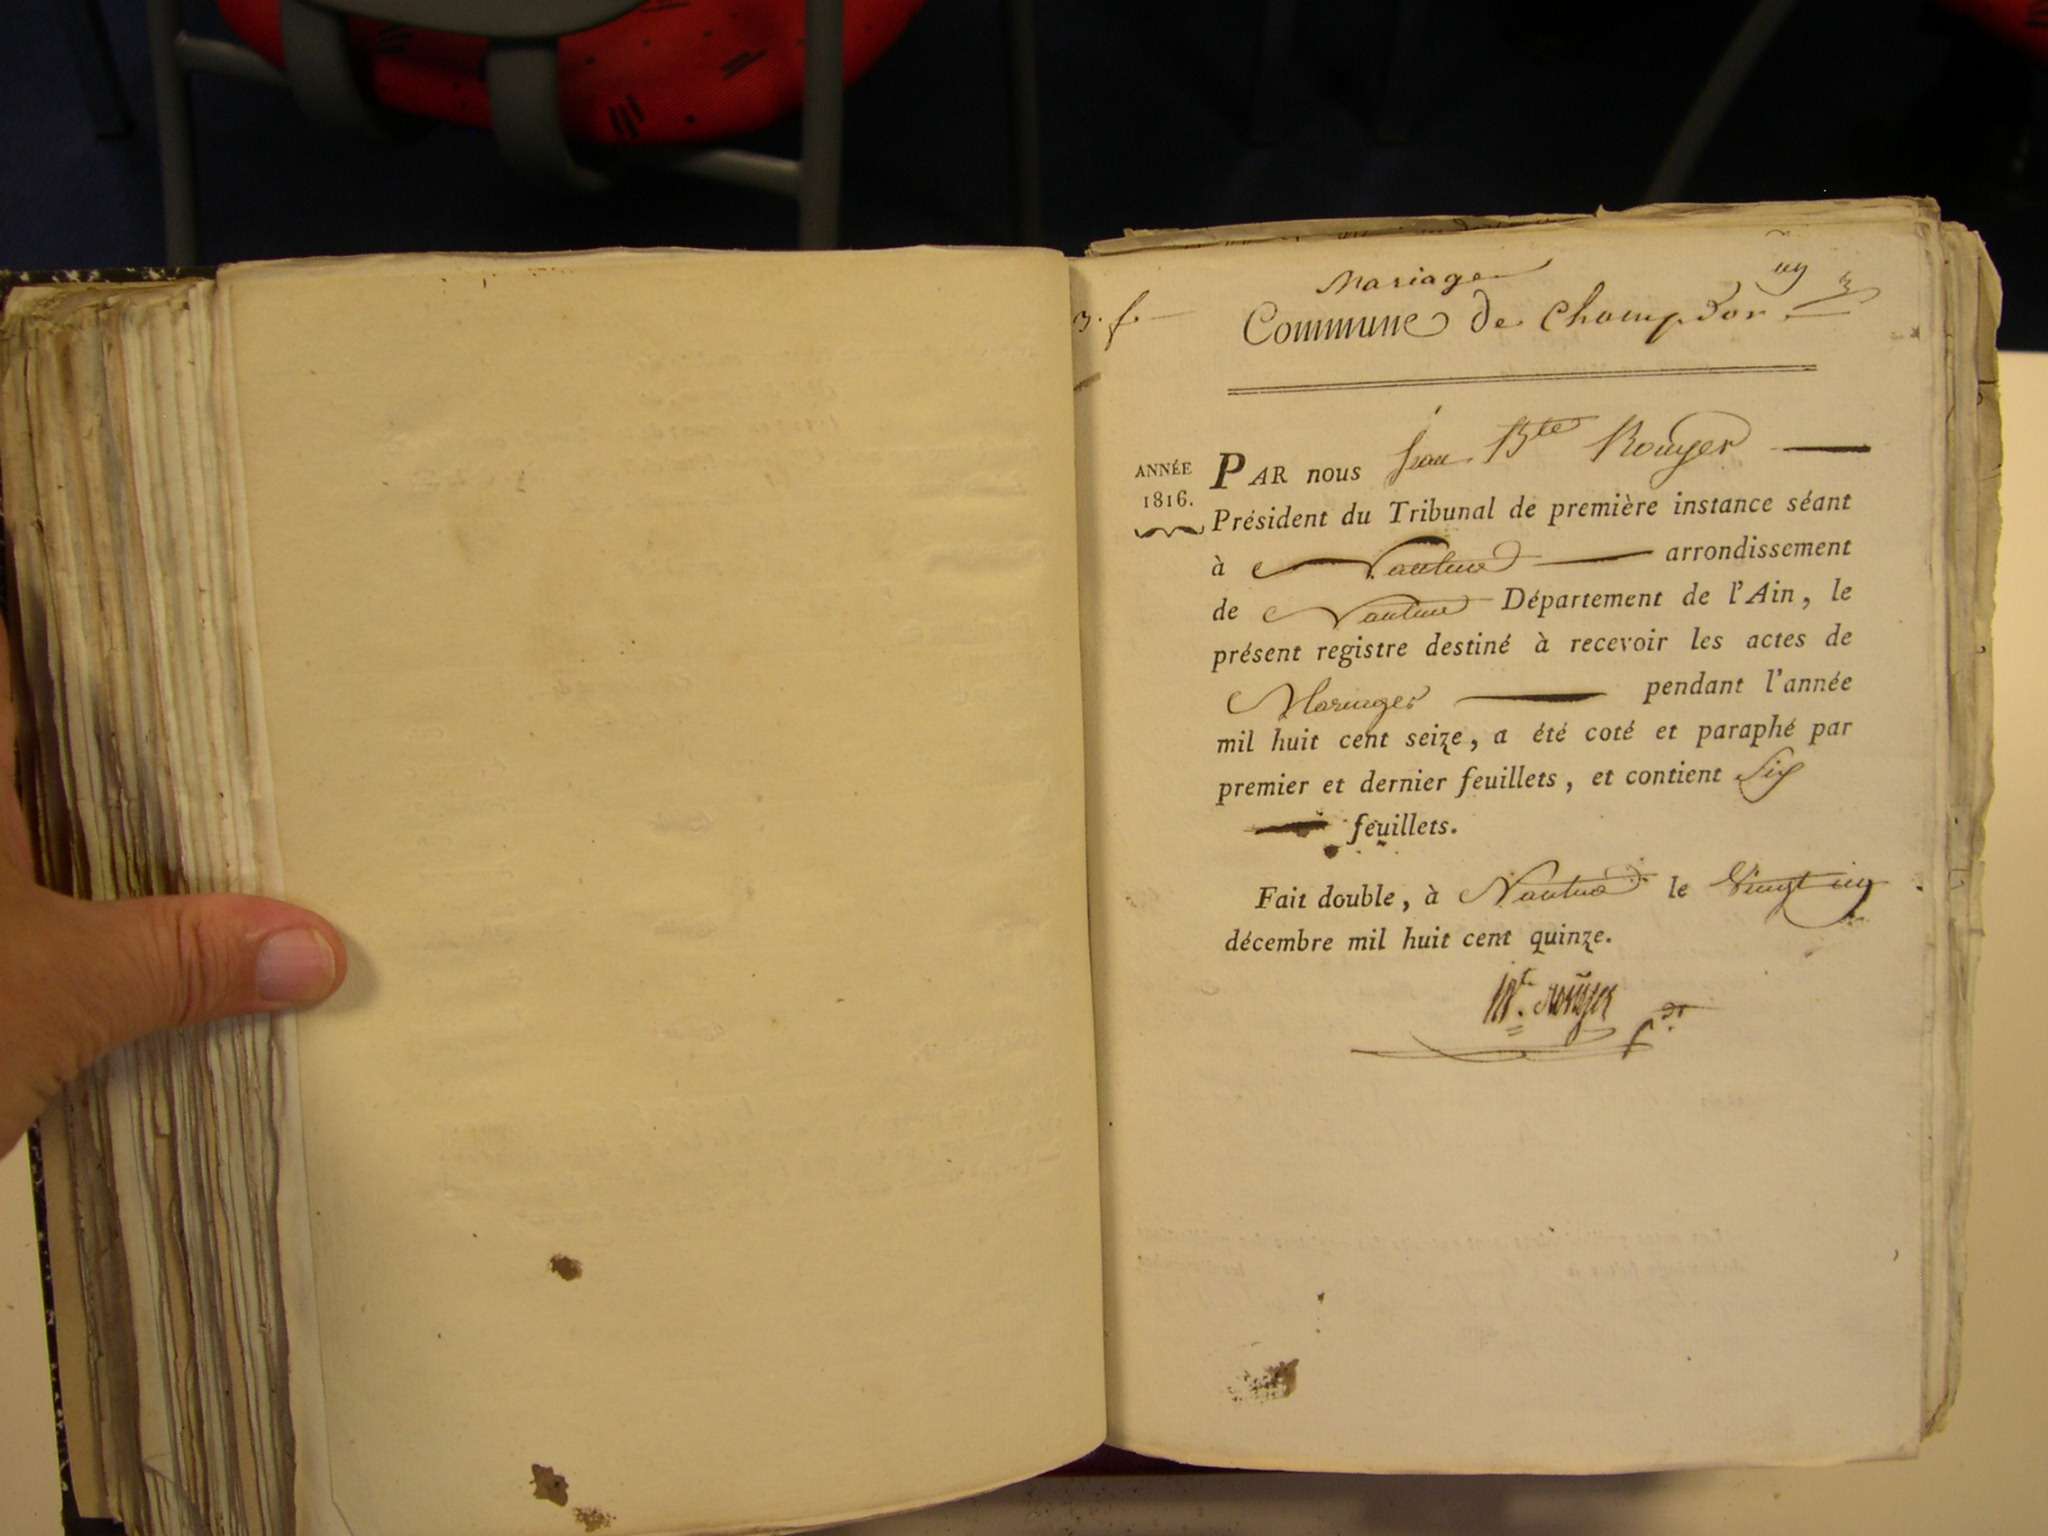 Mariage
3. f.
Commune de Champdor
ANNÉE
1816.
PAR nous Jean Bte Rouyer
Président du Tribunal de première instance séant
à Nantua arrondissement
de Nantua Département de l'Ain, le
présent registre destiné à recevoir les actes de
Mariages pendant l'année
mil huit cent seize, a été coté et paraphé par
premier et dernier feuillets, et contient Six
feuillets.
Fait double, à Nantua le Vingt un
décembre mil huit cent quinze.
Bte. Rouyer